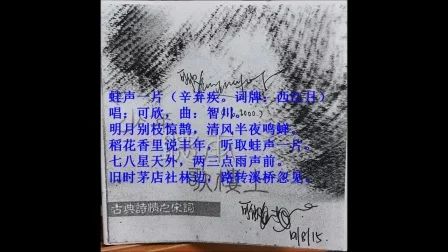 蛙声一片（辛弃疾。词牌：西江月）
唱：可欣，曲：智川。
明月别枝惊鹊，清风半夜鸣蝉。
稻花香里说丰年，听取蛙声一片。
七八星天外，两三点雨声前。
旧时茅店社林边，路转溪桥忽见。
歌樓上
古典詩情之宋詞
10/8/15.